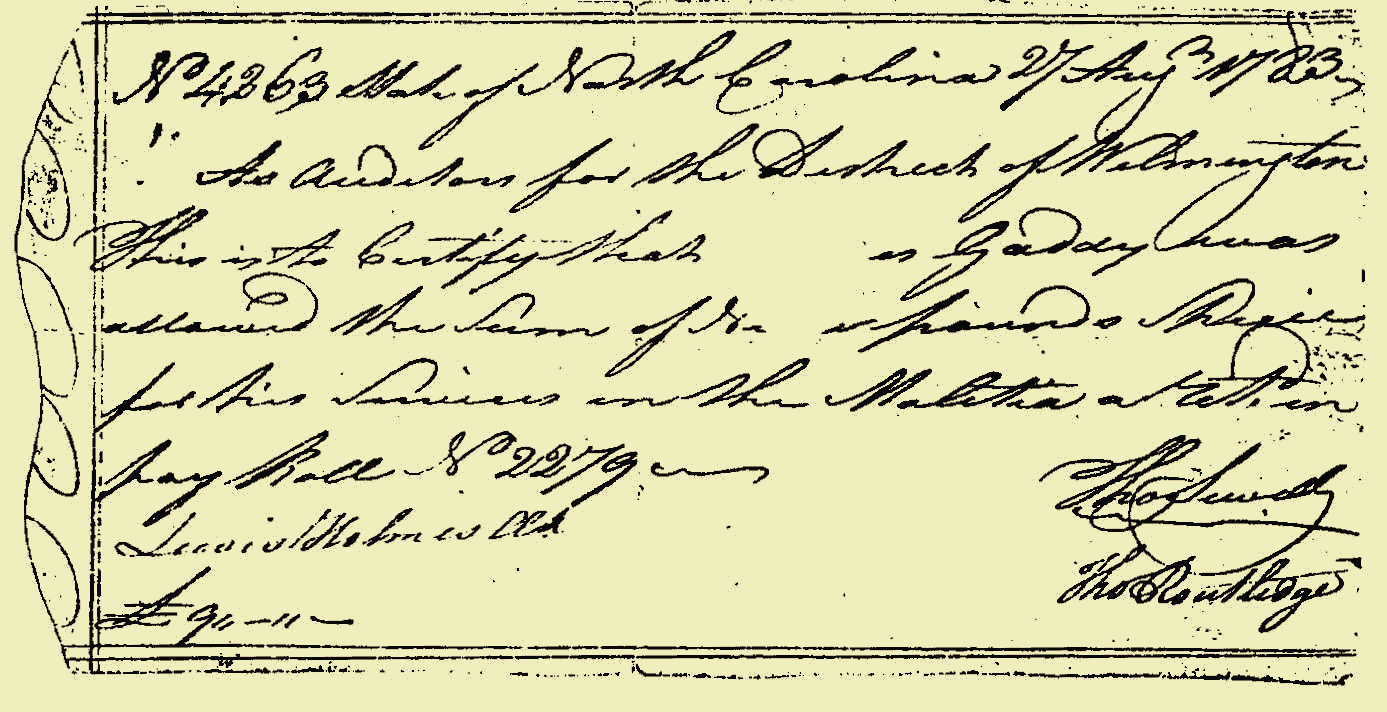 No 4263 State of North Carolina 27 Augt 1783
As Auditors for the District of Wilmington
This is to Certify that as Gaddy was
allowed the Sum of Ni e pounds Specie
for his Services in the Malitia as
pay Roll No 2279
Holmes Clk
Tho Sewell
Tho Routledge
£ 9,, - ,, -